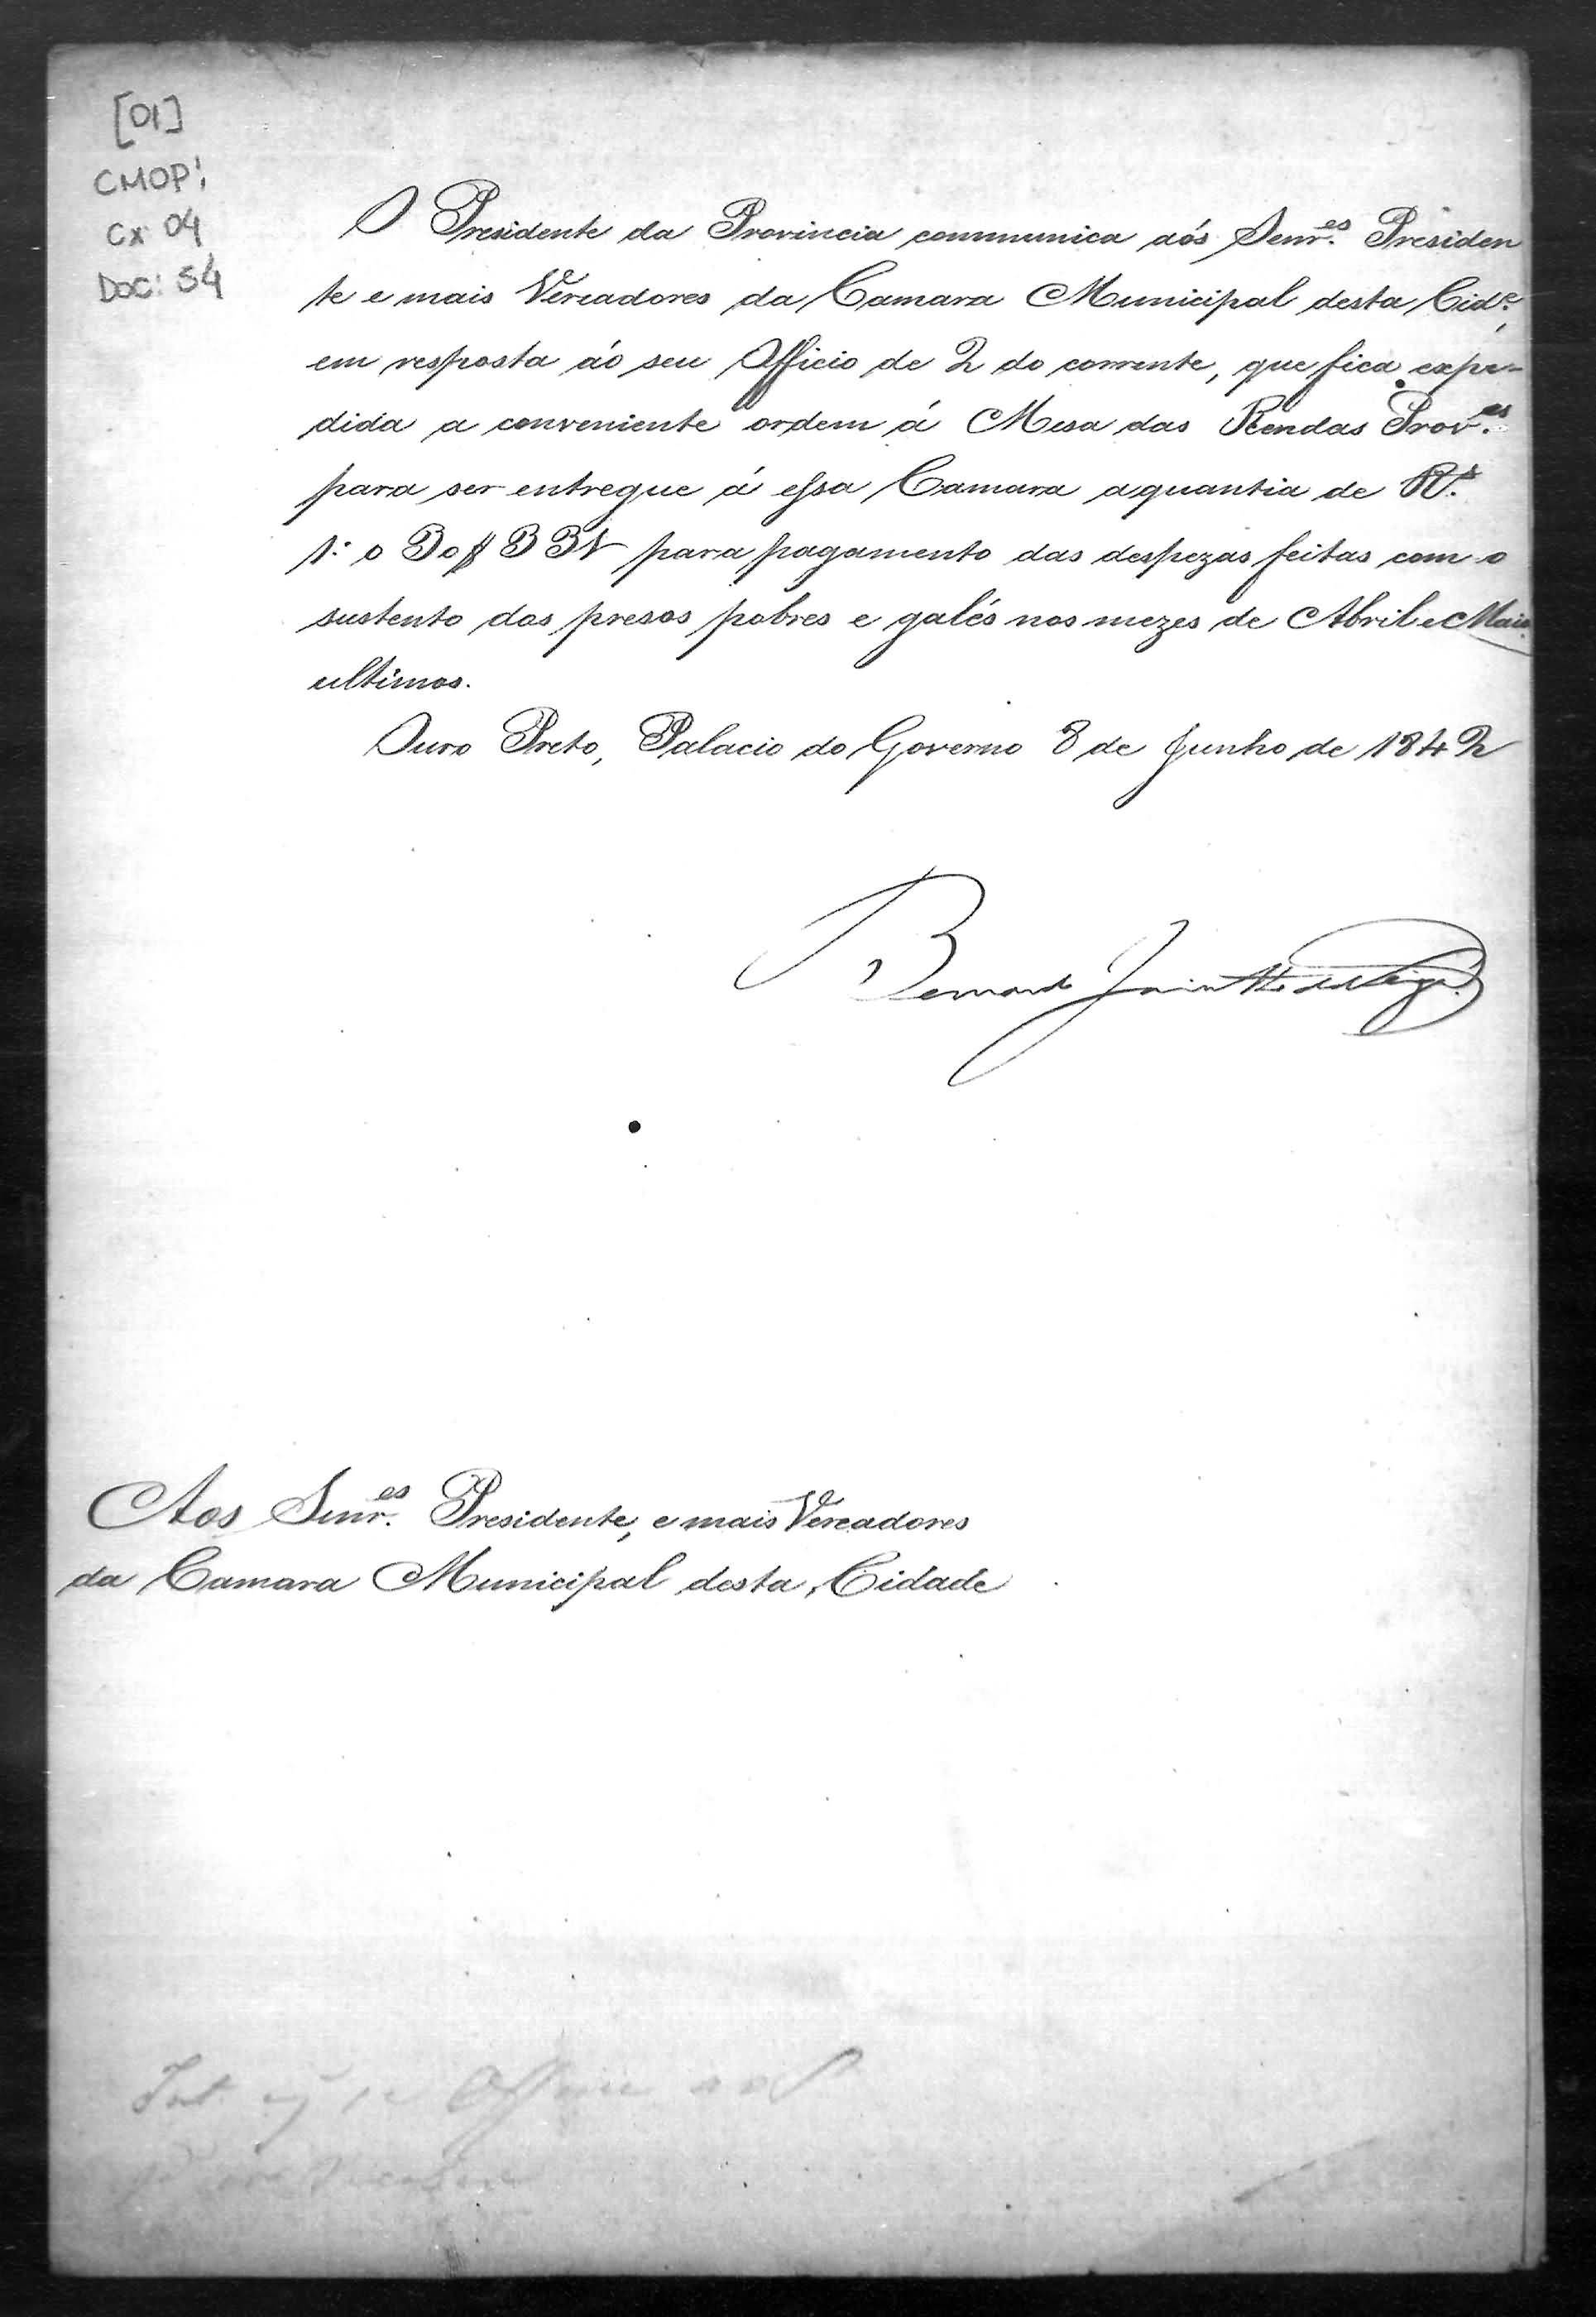 [01]
CMOP:
Cx 04
Doc: 54
O Presidente da Provincia communica aós Senr.es Presiden
te e mais Vereadores da Camara Municipal desta Cid.e,
em resposta áo seu Officio de 2 do corrente, que fica expe-
dida a conveniente ordem á Mesa das Rendas Prov.es
para ser entregue á essa Camara a quantia de R.s
para pagamento das despezas feitas com o
sustento dos presos pobres e galés nos mezes de Abril e Maio
ultimos.
Ouro Preto, Palacio do Governo 8 de Junho de 1842
Bernardo Jacinto da Veiga
Aos Senr.es Presidente, e mais Vereadores
da Camara Municipal desta Cidade